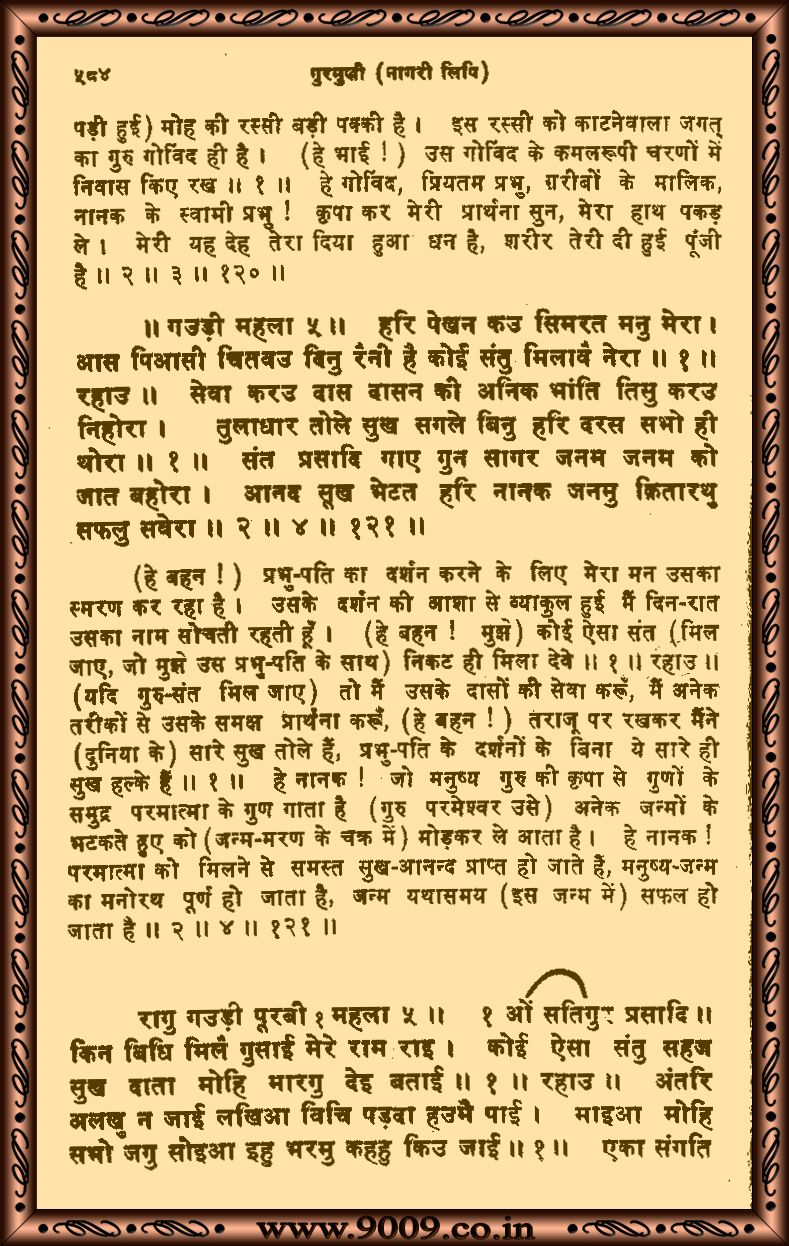 ५८४ गुरमुखी (नागरी लिपि)
पड़ी हुई) मोह की रस्सी बड़ी पक्की है । इस रस्सी को काटनेवाला जगत्
का गुरु गोविंद ही है । (हे भाई ! ) उस गोविंद के कमलरूपी चरणों में
निवास किए रख ॥ १ ॥ हे गोविंद, प्रियतम प्रभु, ग़रीबों के मालिक,
नानक के स्वामी प्रभु ! कृपा कर मेरी प्रार्थना सुन, मेरा हाथ पकड़
ले । मेरी यह देह तेरा दिया हुआ धन है, शरीर तेरी दी हुई पूंजी
है ॥ २ ॥ ३ ॥ १२० ॥
॥ गउड़ी महला ५ ॥ हरि पेखन कउ सिमरत मनु मेरा ।
आस पिआसी चितवउ बिनु रैनी है कोई संतु मिलावै नेरा ॥ १ ॥
रहाउ ॥ सेवा करउ दास दासन की अनिक भांति तिसु करउ
निहोरा । तुलाधार तोले सुख सगले बिनु हरि दरस सभो ही
थोरा ॥ १ ॥ संत प्रसादि गाए गुन सागर जनम जनम को
जात बहोरा । आनद सूख भेटत हरि नानक जनमु क्रितारथु
सफलु सवेरा ॥ २ ॥ ४ ॥ १२१ ॥
(हे बहन ! ) प्रभु-पति का दर्शन करने के लिए मेरा मन उसका
स्मरण कर रहा है । उसके दर्शन की आशा से व्याकुल हुई मैं दिन-रात
उसका नाम सोचती रहती हूँ । (हे बहन ! मुझे) कोई ऐसा संत (मिल
जाए, जो मुझे उस प्रभु-पति के साथ) निकट ही मिला देवे ॥ १ ॥ रहाउ ॥
(यदि गुरु-संत मिल जाए) तो मैं उसके दासों की सेवा करूँ, मैं अनेक
तरीकों से उसके समक्ष प्रार्थना करूँ, (हे बहन ! ) तराजू पर रखकर मैंने
(दुनिया के) सारे सुख तोले हैं, प्रभु-पति के दर्शनों के बिना ये सारे ही
सुख हल्के हैं ॥ १ ॥ हे नानक ! जो मनुष्य गुरु की कृपा से गुणों के
समुद्र परमात्मा के गुण गाता है (गुरु परमेश्वर उसे) अनेक जन्मों के
भटकते हुए को (जन्म-मरण के चक्र में) मोड़कर ले आता है । हे नानक !
परमात्मा को मिलने से समस्त सुख-आनन्द प्राप्त हो जाते हैं, मनुष्य-जन्म
का मनोरथ पूर्ण हो जाता है, जन्म यथासमय (इस जन्म में) सफल हो
जाता है ॥ २ ॥ ४ ॥ १२१ ॥
रागु गउड़ी पूरबी १ महला ५ ॥ १ ओं सतिगुर प्रसादि ॥
किन बिधि मिलै गुसाई मेरे राम राइ । कोई ऐसा संतु सहज
सुख दाता मोहि मारगु देइ बताई ॥ १ ॥ रहाउ ॥ अंतरि
अलखु न जाई लखिआ विचि पड़दा हउमै पाई । माइआ मोहि
सभो जगु सोइआ इहु भरमु कहहु किउ जाई ॥ १ ॥ एका संगति
www.9009.co.in